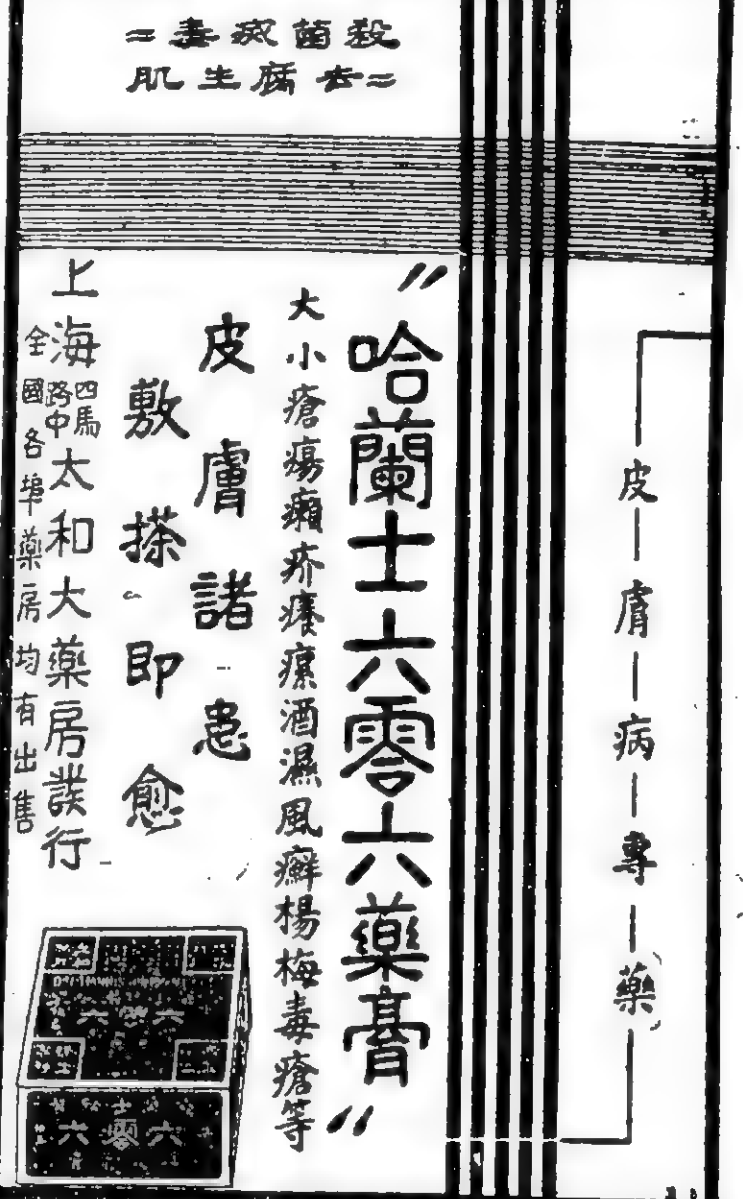 殺菌滅毒
去腐生肌
皮膚病專藥
"哈蘭士六零六藥膏"
大小瘡瘍癩疥癢瘰酒濕風癬楊梅毒瘡等
皮膚諸患
敷搽即愈
上海四馬路中太和大藥房發行
全國各埠藥房均有出售
六零六
六零六